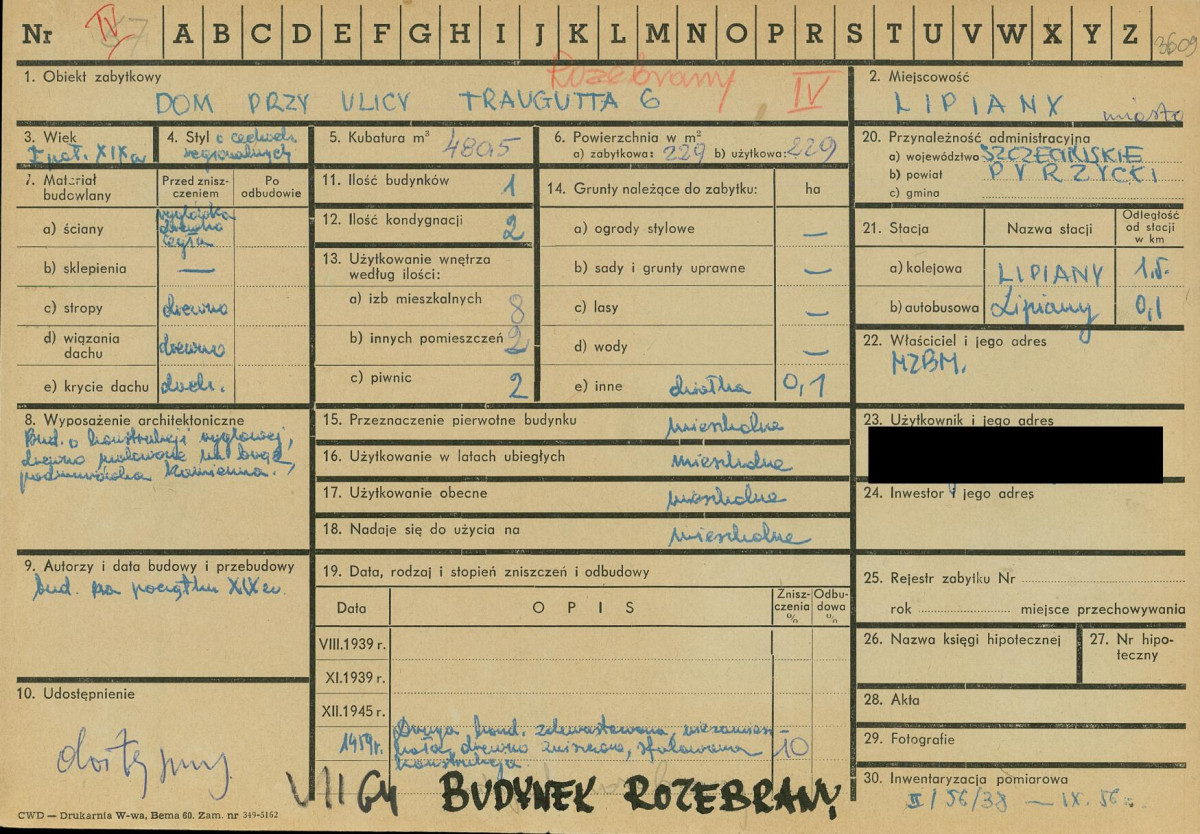 Nr IV 37 A B C D E F G H I J K L M N O P R S T U V W X Y Z 3609
1. Obiekt zabytkowy
Rozebrany IV
DOM PRZY ULICY TRAUGUTTA 6
2. Miejscowość
LIPIANY miasto
3. Wiek
I poł. XIX w
4. Styl o cechach
regionalnych
5. Kubatura m³ 480,5
6. Powierzchnia w m²
a) zabytkowa: 229 b) użytkowa: 229
20. Przynależność administracyjna
a) województwo SZCZECIŃSKIE
b) powiat PYRZYCKI
c) gmina
7. Materiał
budowlany
Przed znisz-
czeniem
Po
odbudowie
a) ściany
ryglówka
drewno
cegła
b) sklepienia —
c) stropy drewno
d) wiązania
dachu drewno
e) krycie dachu dach.
11. Ilość budynków 1
12. Ilość kondygnacji 2
13. Użytkowanie wnętrza
według ilości:
a) izb mieszkalnych 8
b) innych pomieszczeń 2
c) piwnic 2
14. Grunty należące do zabytku: ha
a) ogrody stylowe —
b) sady i grunty uprawne —
c) lasy —
d) wody —
e) inne działka 0,1
21. Stacja
Nazwa stacji
Odległość
od stacji
w km
a) kolejowa LIPIANY 1,5.
b) autobusowa Lipiany 0,1
22. Właściciel i jego adres
MZBM.
8. Wyposażenie architektoniczne
Bud. o konstrukcji ryglowej,
drewno malowane na brąz,
podmurówka kamienna.
15. Przeznaczenie pierwotne budynku mieszkalne
16. Użytkowanie w latach ubiegłych mieszkalne
17. Użytkowanie obecne mieszkalne
18. Nadaje się do użycia na mieszkalne
23. Użytkownik i jego adres
24. Inwestor i jego adres
9. Autorzy i data budowy i przebudowy
bud. na początku XIX w.
19. Data, rodzaj i stopień zniszczeń i odbudowy
Data
OPIS
Znisz-
czenia
%
Odbu-
dowa
%
VIII.1939 r.
XI.1939 r.
XII.1945 r.
1959 r.
Druga kond. zdewastowana, niezamiesz-
kała, drewno zniszczone, sfalowana
konstrukcja.
10
25. Rejestr zabytku Nr
rok miejsce przechowywania
26. Nazwa księgi hipotecznej
27. Nr hipo-
teczny
28. Akta
29. Fotografie
30. Inwentaryzacja pomiarowa
II/56/38 — IX. 56 r.
10. Udostępnienie
dostępny.
VII 64 BUDYNEK ROZEBRANY
CWD — Drukarnia W-wa, Bema 60. Zam. nr 349-5162